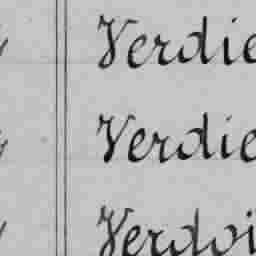 Verdie
Verdie
Verdoi